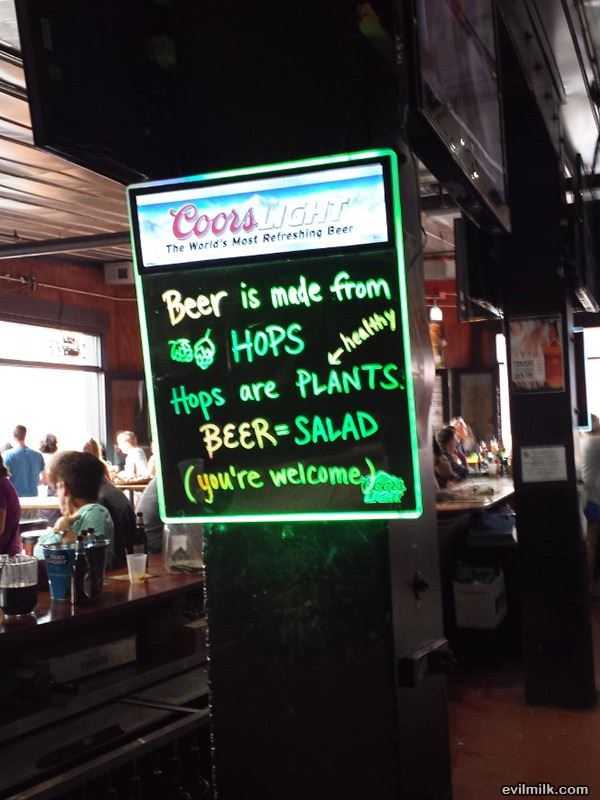 Coors LIGHT
The World's Most Refreshing Beer
Beer is made from
HOPS
healthy
Hops are PLANTS.
BEER=SALAD
(you're welcome)
Coors
Light
evilmilk.com